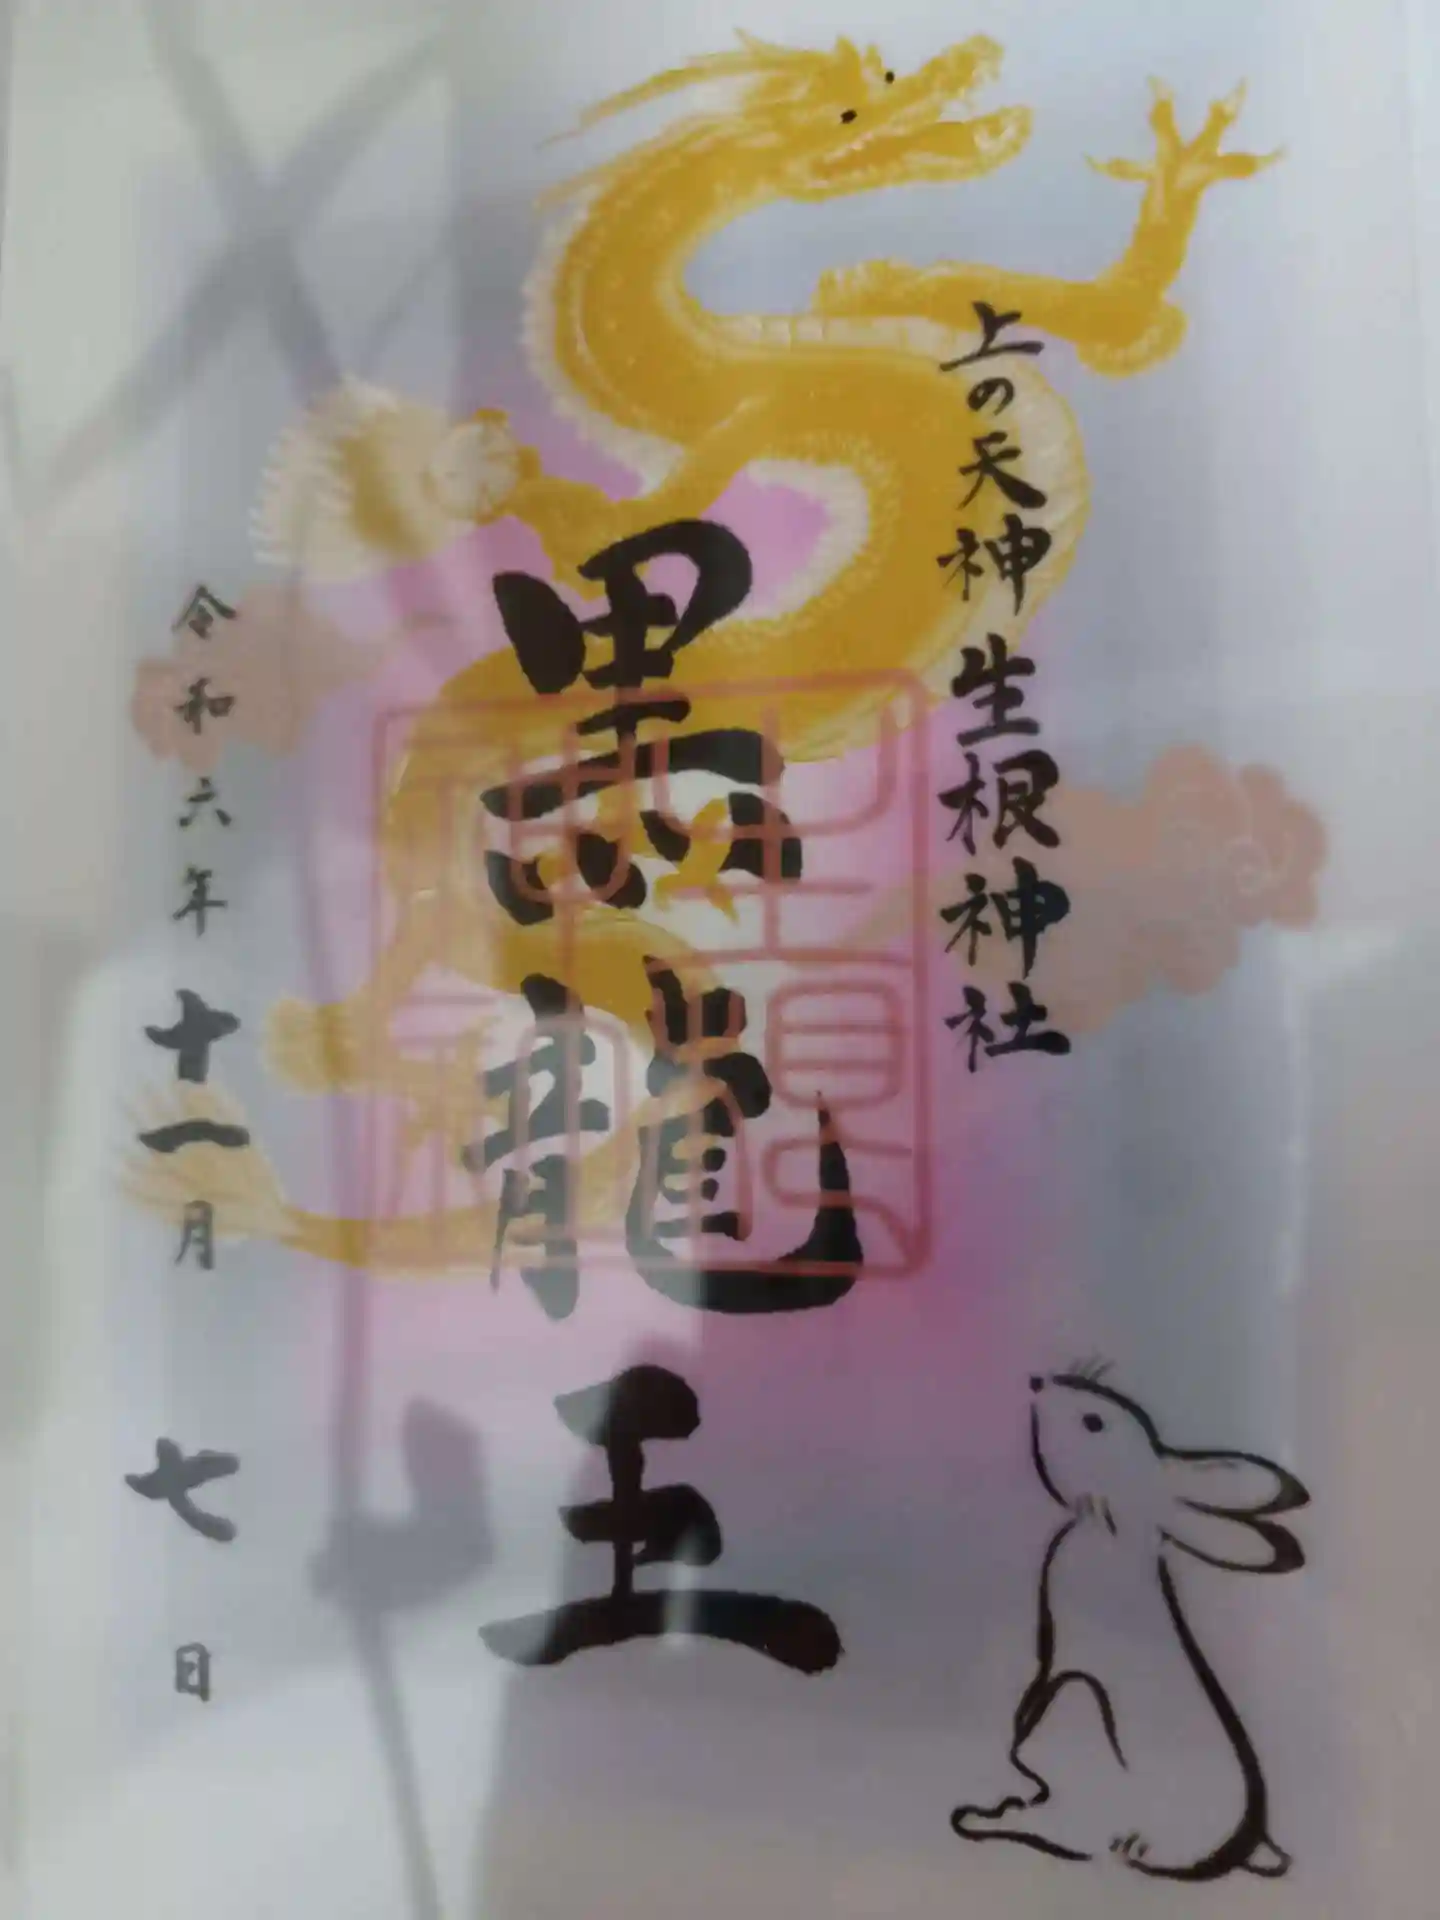 上の天神生根神社
黒龍王
令和六年十一月七日
生根神社